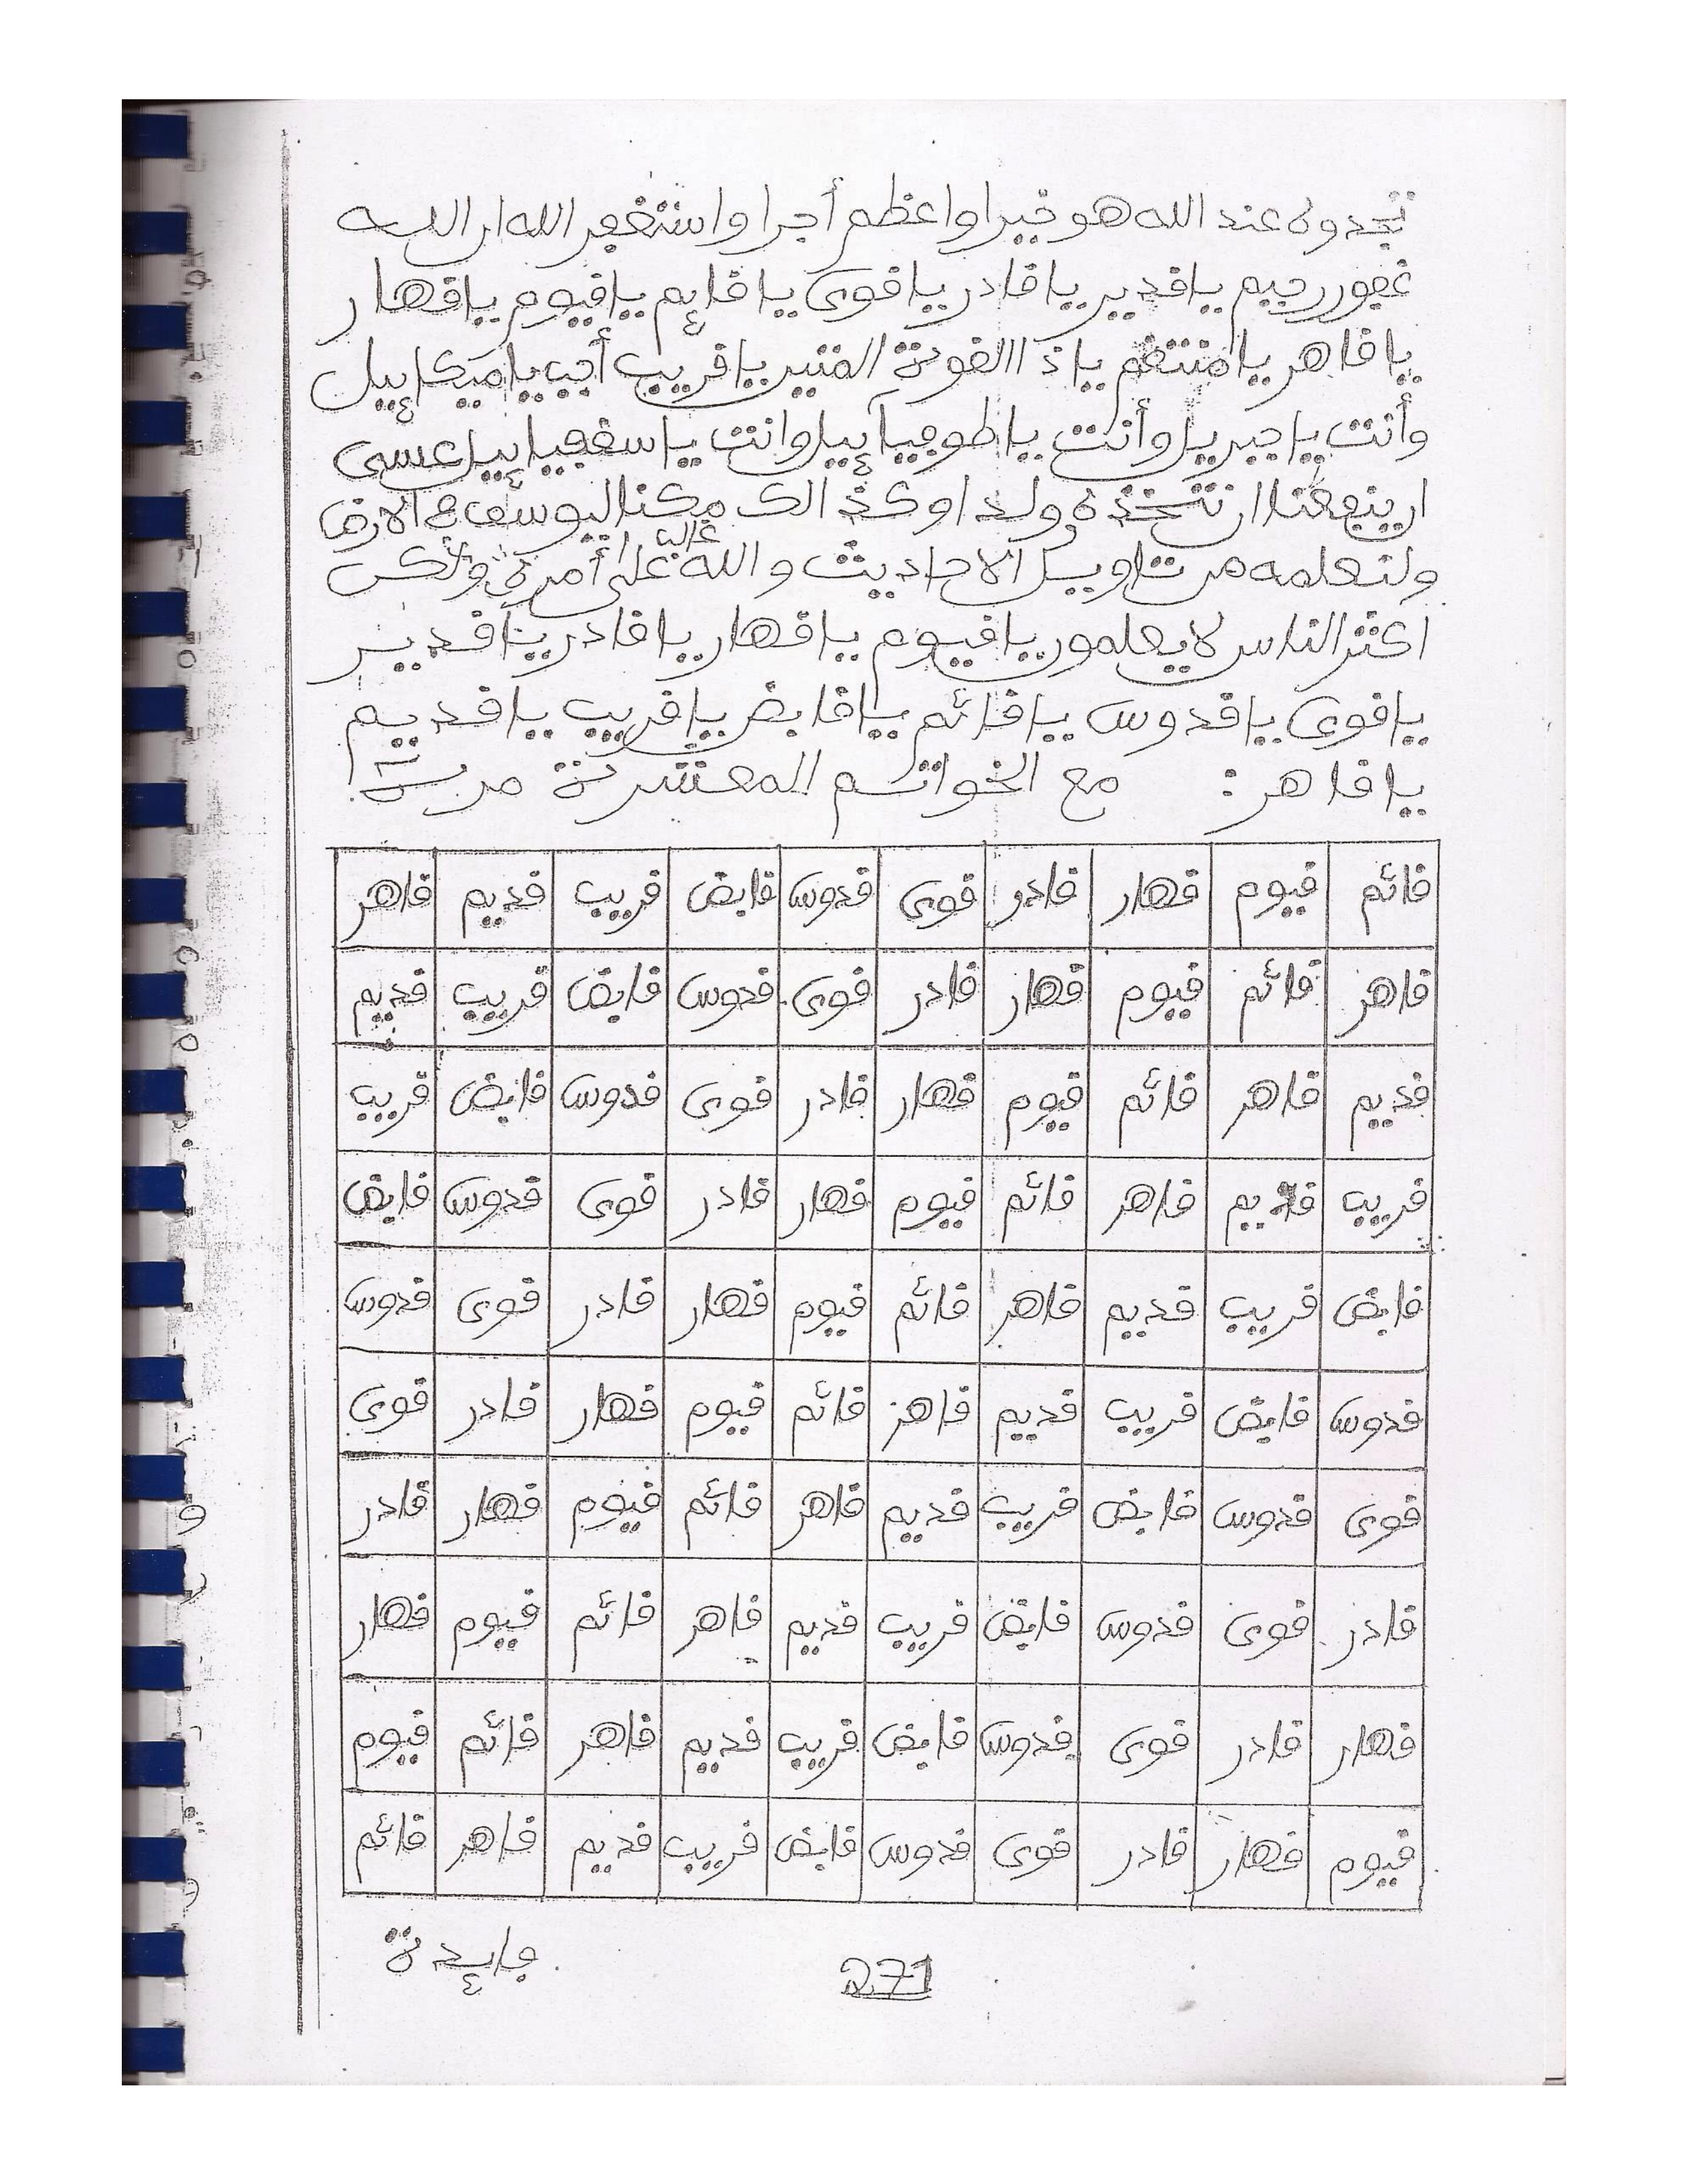 تجدوه عند الله هو خيرا واعظم أجرا واستغفر الله ان الله
غفور رحيم يا قدير يا قادر يا قوى يا قايم يا قيوم يا قهار
يا قاهر يا منتقم يا ذ االقوة المتين يا قريب أجب يا ميكاييل
وأنت يا جبريل وأنت يا طوجيآييل وانت يا سفجياييل عسى
ان ينفعنا ان نتخذه ولدا وكذ الك مكنا ليوسف في الارض
ولنعلمه من تاويل الاحاديث والله غالب على أمره ولكن
اكثر الناس لا يعلمون يا قيوم يا قهار يا قادر يا قدير
يا قوى يا قدوس يا قائم يا قابض يا قريب يا قديم
يا قاهر : مع الخواتم المعتشرة
قائم قيوم قهار قادر قوى قدوس قابض قريب قديم قاهر
قاهر قائم قيوم قهار قادر قوى قدوس قابض قريب قديم
قديم قاهر قائم قيوم قهار قادر قوى قدوس قابض قريب
قريب قديم قاهر قائم قيوم قهار قادر قوى قدوس قابض
قابض قريب قديم قاهر قائم قيوم قهار قادر قوى قدوس
قدوس قابض قريب قديم قاهر قائم قيوم قهار قادر قوى
قوى قدوس قابض قريب قديم قاهر قائم قيوم قهار قادر
قادر قوى قدوس قابض قريب قديم قاهر قائم قيوم قهار
قهار قادر قوى قدوس قابض قريب قديم قاهر قائم قيوم
قيوم قهار قادر قوى قدوس قابض قريب قديم قاهر قائم
فايدة
271